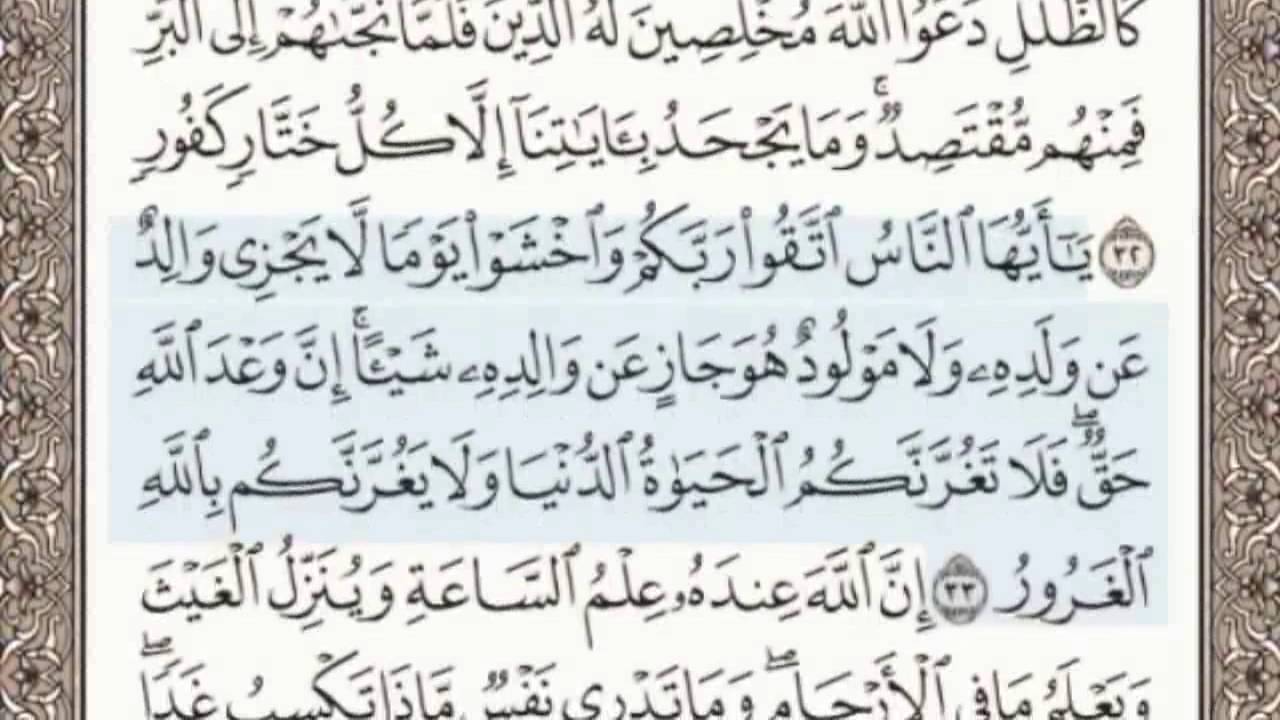 كَٱلظُّلَلِ دَعَوُا۟ ٱللَّهَ مُخْلِصِينَ لَهُ ٱلدِّينَ فَلَمَّا نَجَّىٰهُمْ إِلَى ٱلْبَرِّ
فَمِنْهُم مُّقْتَصِدٌ ۚ وَمَا يَجْحَدُ بِـَٔايَـٰتِنَآ إِلَّا كُلُّ خَتَّارٍ كَفُورٍ
٣٢ يَـٰٓأَيُّهَا ٱلنَّاسُ ٱتَّقُوا۟ رَبَّكُمْ وَٱخْشَوْا۟ يَوْمًا لَّا يَجْزِى وَالِدٌ
عَن وَلَدِهِۦ وَلَا مَوْلُودٌ هُوَ جَازٍ عَن وَالِدِهِۦ شَيْـًٔا ۚ إِنَّ وَعْدَ ٱللَّهِ
حَقٌّ ۖ فَلَا تَغُرَّنَّكُمُ ٱلْحَيَوٰةُ ٱلدُّنْيَا وَلَا يَغُرَّنَّكُم بِٱللَّهِ
ٱلْغَرُورُ ٣٣ إِنَّ ٱللَّهَ عِندَهُۥ عِلْمُ ٱلسَّاعَةِ وَيُنَزِّلُ ٱلْغَيْثَ
وَيَعْلَمُ مَا فِى ٱلْأَرْحَامِ ۖ وَمَا تَدْرِى نَفْسٌ مَّاذَا تَكْسِبُ غَدًا ۖ